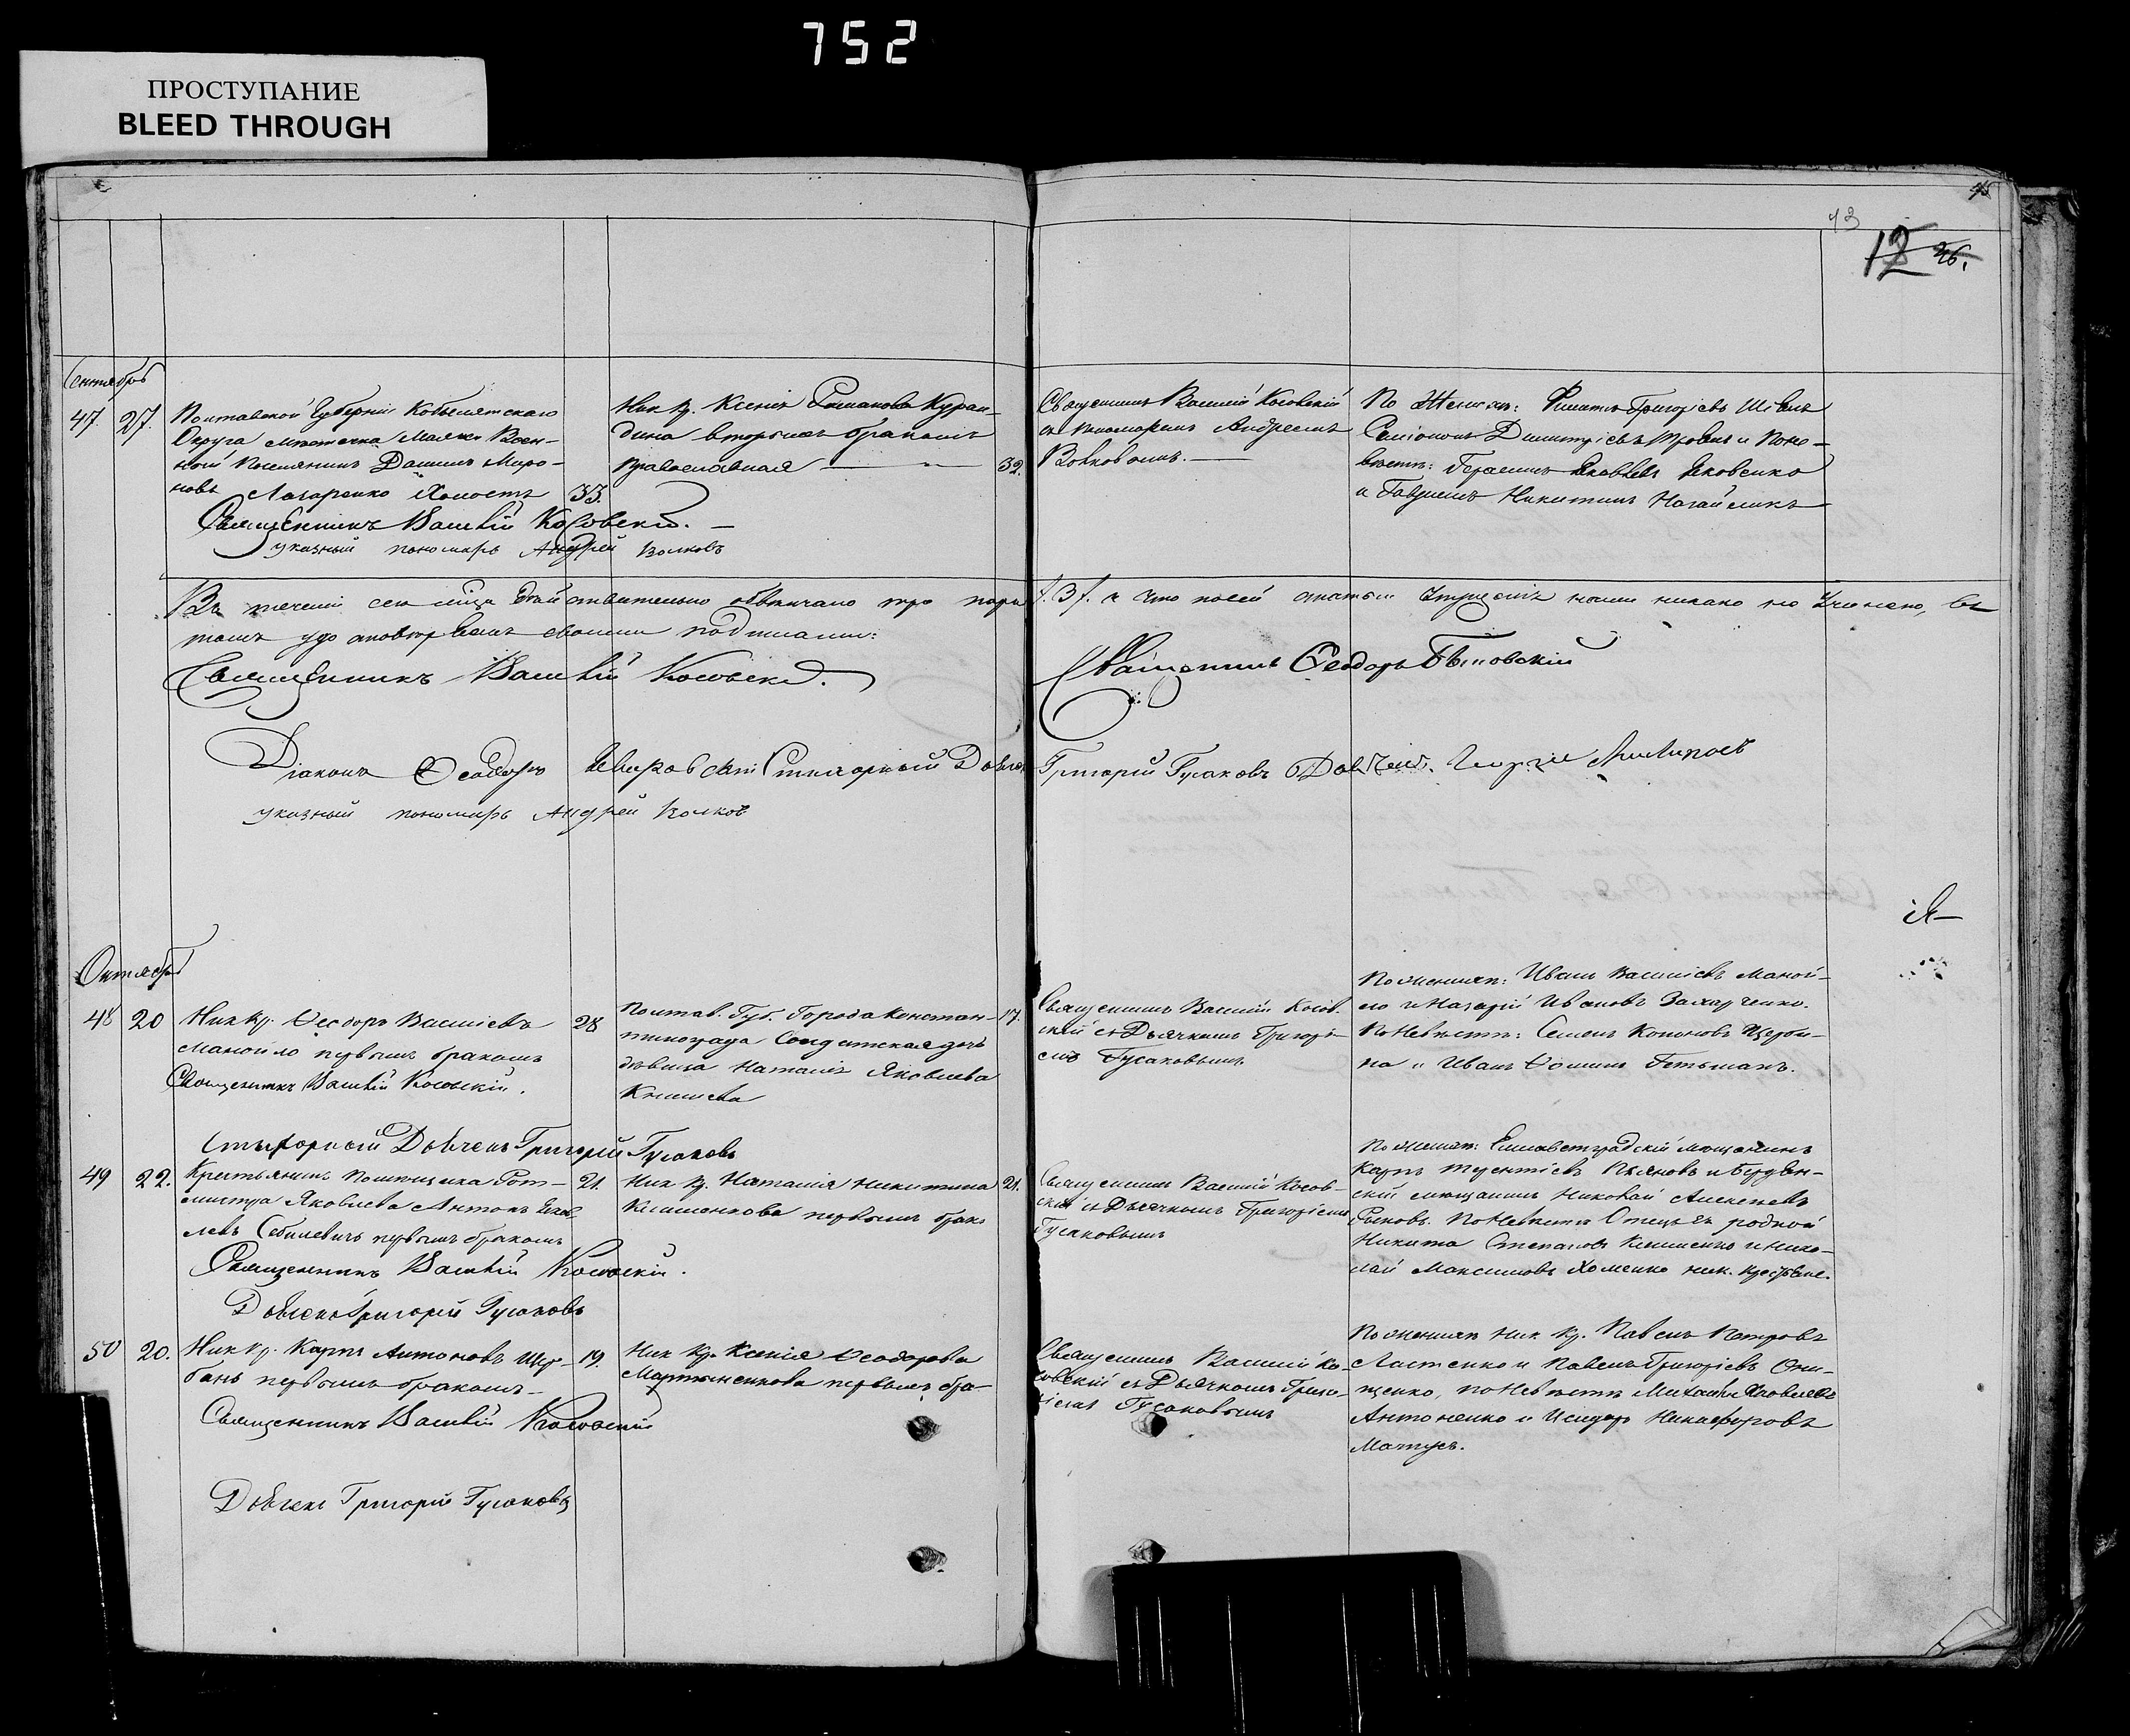 752
ПРОСТУПАНИЕ
BLEED THROUGH
13
12 26.
Сентябрь
47. 27.
Полтавской Губернiи Кобелятскаго
Округа местечка Маячки Воен-
ной поселянинъ Данiилъ Миро-
новъ Лазаренко Холостъ 33.
Ник кр. Ксенiя Романова
вторымъ бракомъ
православная 32.
Священникъ Василiй Косовскiй
съ пономаремъ Андреемъ
Волковымъ.
По Женихѣ: Филипъ Григорiевъ
Димитрiевъ и По не-
вѣстѣ: Герасимъ Яковлевъ Яковенко
и Никитинъ
Священникъ Василiй Косовскiй.
указный пономарь Андрей Волковъ
Въ теченiи сего мѣсяца действительно обвенчано три пары /:3:/. и что по сей статьи ничего не учинено, въ
томъ удостоверяемъ своими подписами:
Священникъ Василiй Косовскiй.
Священникъ Ѳеодоръ
Дiаконъ Ѳеодоръ Стихарный Дьячекъ Григорiй Гусаковъ Дьячекъ
указный пономарь Андрей Волковъ
Октябрь
48 20
Ник кр. Ѳеодоръ Василiевъ
Манойло первымъ бракомъ 28
Полтав. Губ. Города Констан-
тинограда Солдатская дочь
дѣвица Наталiя Яковлева 17.
Священникъ Василiй Косов-
скiй съ Дьячкомъ Григорi-
емъ Гусаковымъ
По женихѣ: Иванъ Василiевъ Маной-
ло и Назарiй Ивановъ Захарченко.
По Невѣстѣ: Семенъ Кононовъ Щерби-
на и Иванъ Ѳоминъ Гетьманъ.
Священникъ Василiй Косовскiй.
Стихарный Дьячекъ Григорiй Гусаковъ
49 22.
Крестьянинъ помещика Рот-
мистра Яковлева Антонъ Яков-
левъ первымъ бракомъ 21.
Ник кр. Наталiя Никитина
Клименкова первымъ брако 21.
Священникъ Василiй Косов-
скiй съ Дьячкомъ Григорiемъ
Гусаковымъ
По женихѣ: Елисаветградскiй мещанинъ
Карпъ Пьяновъ и Бердян-
скiй мещанинъ Николай Алексеевъ
По Невѣстѣ Отецъ ея родной
Никита Степановъ Клименко и Нико-
лай Максимовъ Хоменко ник. крестьяне.
Священникъ Василiй Косовскiй.
Дьячекъ Григорiй Гусаковъ
50 20.
Ник кр. Карпъ Антоновъ Щер-
бань первымъ бракомъ 19.
Ник кр. Ксенiя Ѳеодорова
Мартыненкова первымъ бра-
Священникъ Василiй Ко-
совскiй съ Дьячкомъ Григо-
рiемъ Гусаковымъ
По женихѣ ник кр. Павелъ Петровъ
Ластенко и Павелъ Григорiевъ Они-
щенко, по Невѣстѣ Михаилъ Яковлевъ
Антоненко и Исидоръ Никифоровъ
Матусь.
Священникъ Василiй Косовскiй
Дьячекъ Григорiй Гусаковъ